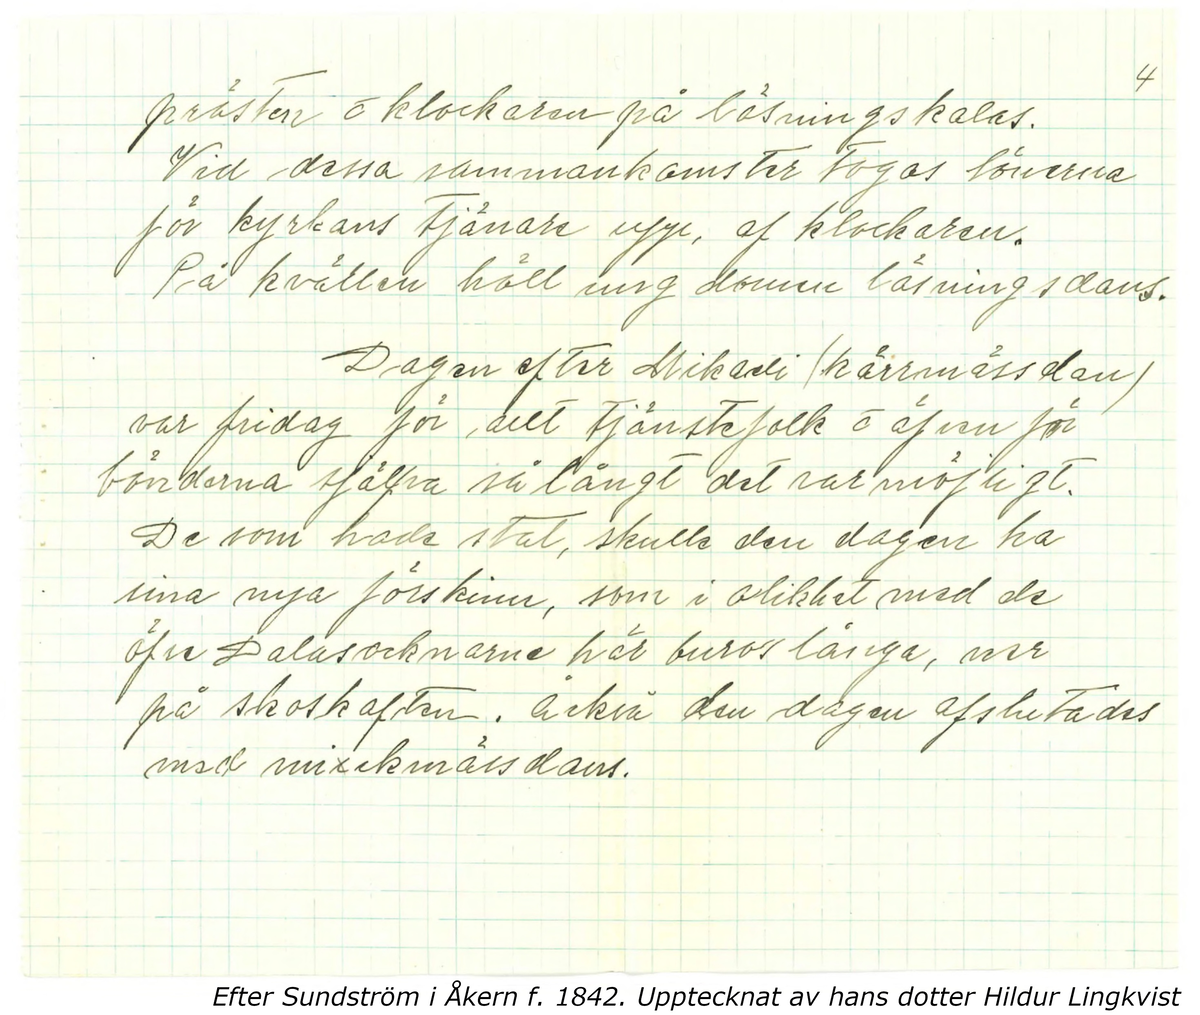 4
prästen o klockaren på läsningskalas.
Vid dessa sammankomster togos lönerna
för kyrkans tjänare upp, af klockaren.
På kvällen höll ung domen läsningsdans.
Dagen efter Mikaeli (kärrmässdan)
var fridag för allt tjänstefolk o äfven för
bönderna själfva så långt det var möjligt.
De som hade stat, skulle den dagen ha
sina nya förskinn, som i olikhet med de
öfre Dalasocknarne här buros långa, ner
på skoskaften. den dagen afslutades
med
Efter Sundström i Åkern f. 1842. Upptecknat av hans dotter Hildur Lingkvist